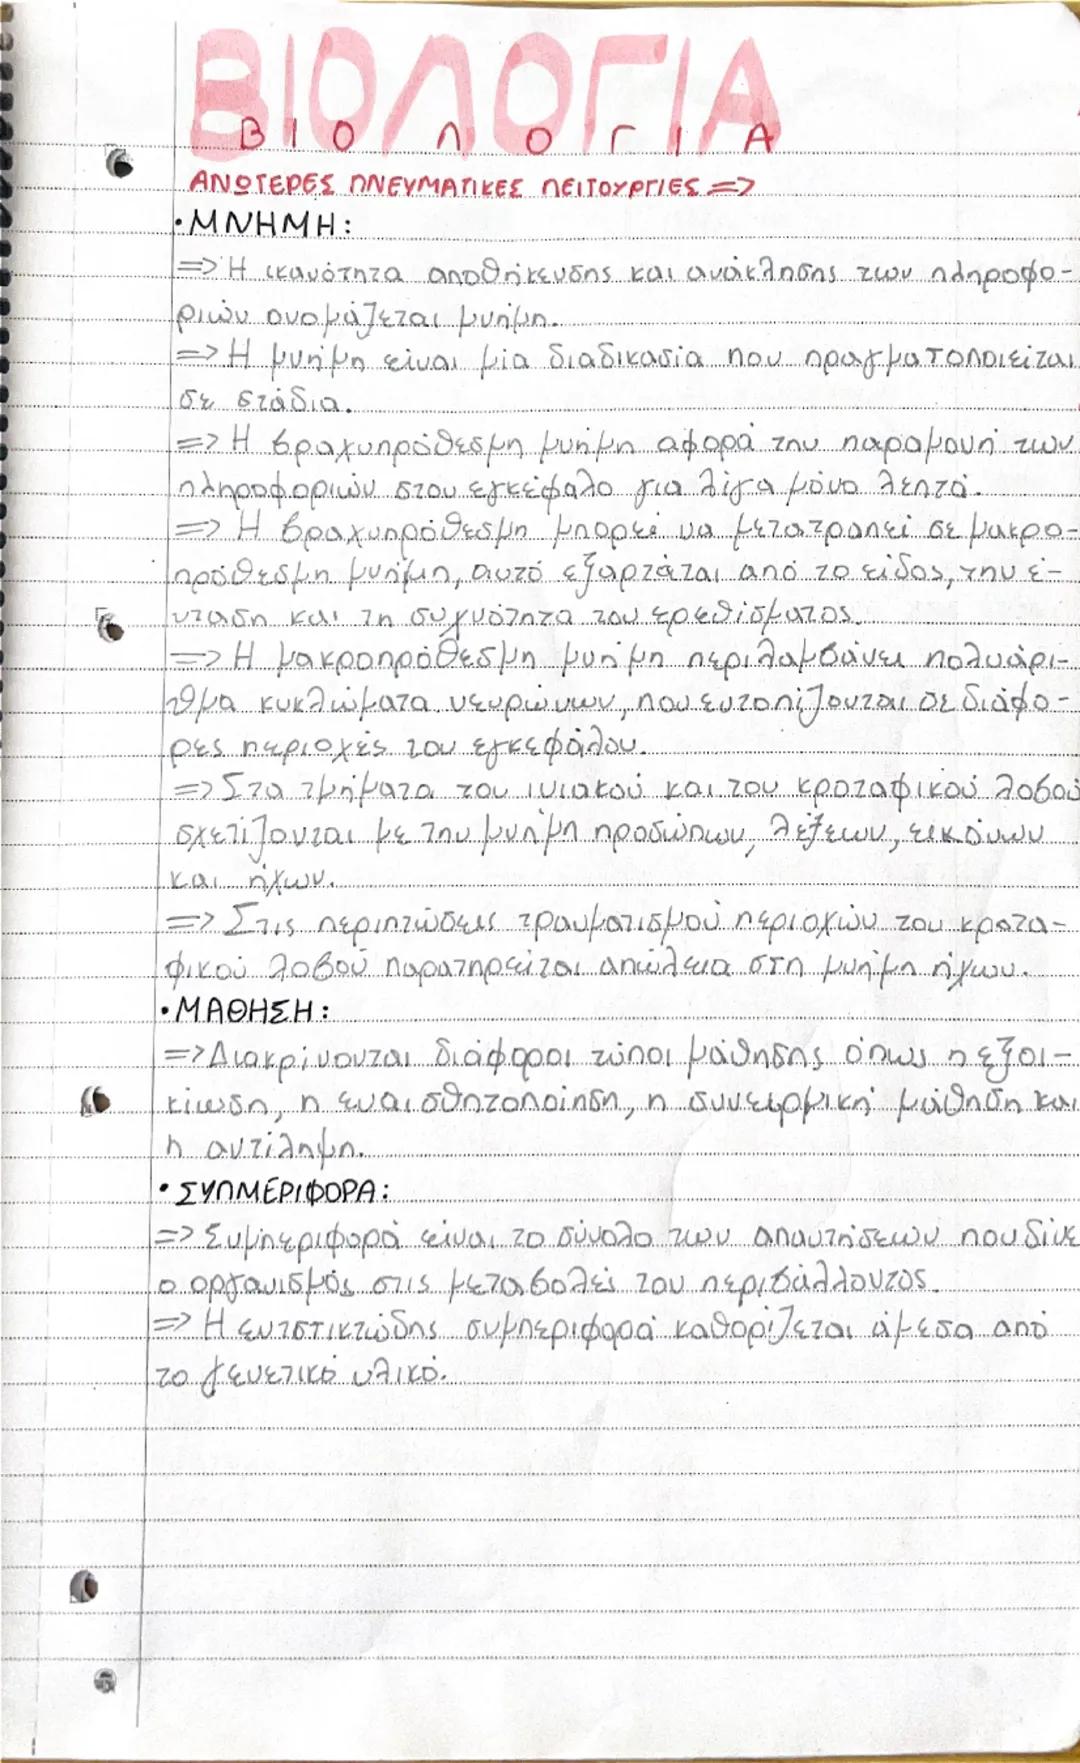 ΒΙΟΛΟΓΙΑ
ΒΙΟΛΟΓΙΑ
ΑΝΩΤΕΡΕΣ ΠΝΕΥΜΑΤΙΚΕΣ ΛΕΙΤΟΥΡΓΙΕΣ =>
• ΜΝΗΜΗ:
=> Η ικανότητα αποθήκευσης και ανάκλησης των πληροφο-
ριών ονομάζεται μνήμη.
=> Η μνήμη είναι μία διαδικασία που πραγματοποιείται
σε στάδια.
=> Η βραχυπρόθεσμη μνήμη αφορά την παραμονή των
πληροφοριών στον εγκέφαλο για λίγα μόνο λεπτά.
=> Η βραχυπρόθεσμη μπορεί να μετατραπεί σε μακρο-
πρόθεσμη μνήμη, αυτό εξαρτάται από το είδος, την έ-
νταση και τη συχνότητα του ερεθίσματος.
=> Η μακροπρόθεσμη μνήμη περιλαμβάνει πολυάρι-
θμα κυκλώματα νευρώνων, που εντοπίζονται σε διάφο-
ρες περιοχές του εγκεφάλου.
=> Στα τμήματα του ινιακού και του κροταφικού λοβού
σχετίζονται με την μνήμη προσώπων, λέξεων, εικόνων
και ήχων.
=> Στις περιπτώσεις τραυματισμού περιοχών του κροτα-
φικού λοβού παρατηρείται απώλεια στη μνήμη ήχων.
• ΜΑΘΗΣΗ:
=> Διακρίνονται διάφοροι τύποι μάθησης όπως η εξοι-
κίωση, η ευαισθητοποίηση, η συνειρμική μάθηση και
η αντίληψη.
• ΣΥΠΜΕΡΙΦΟΡΑ:
=> Συμπεριφορά είναι το σύνολο των απαντήσεων που δίνε
ο οργανισμός στις μεταβολές του περιβάλλοντος.
=> Η ενστικτώδης συμπεριφορά καθορίζεται άμεσα από
το γενετικό υλικό.